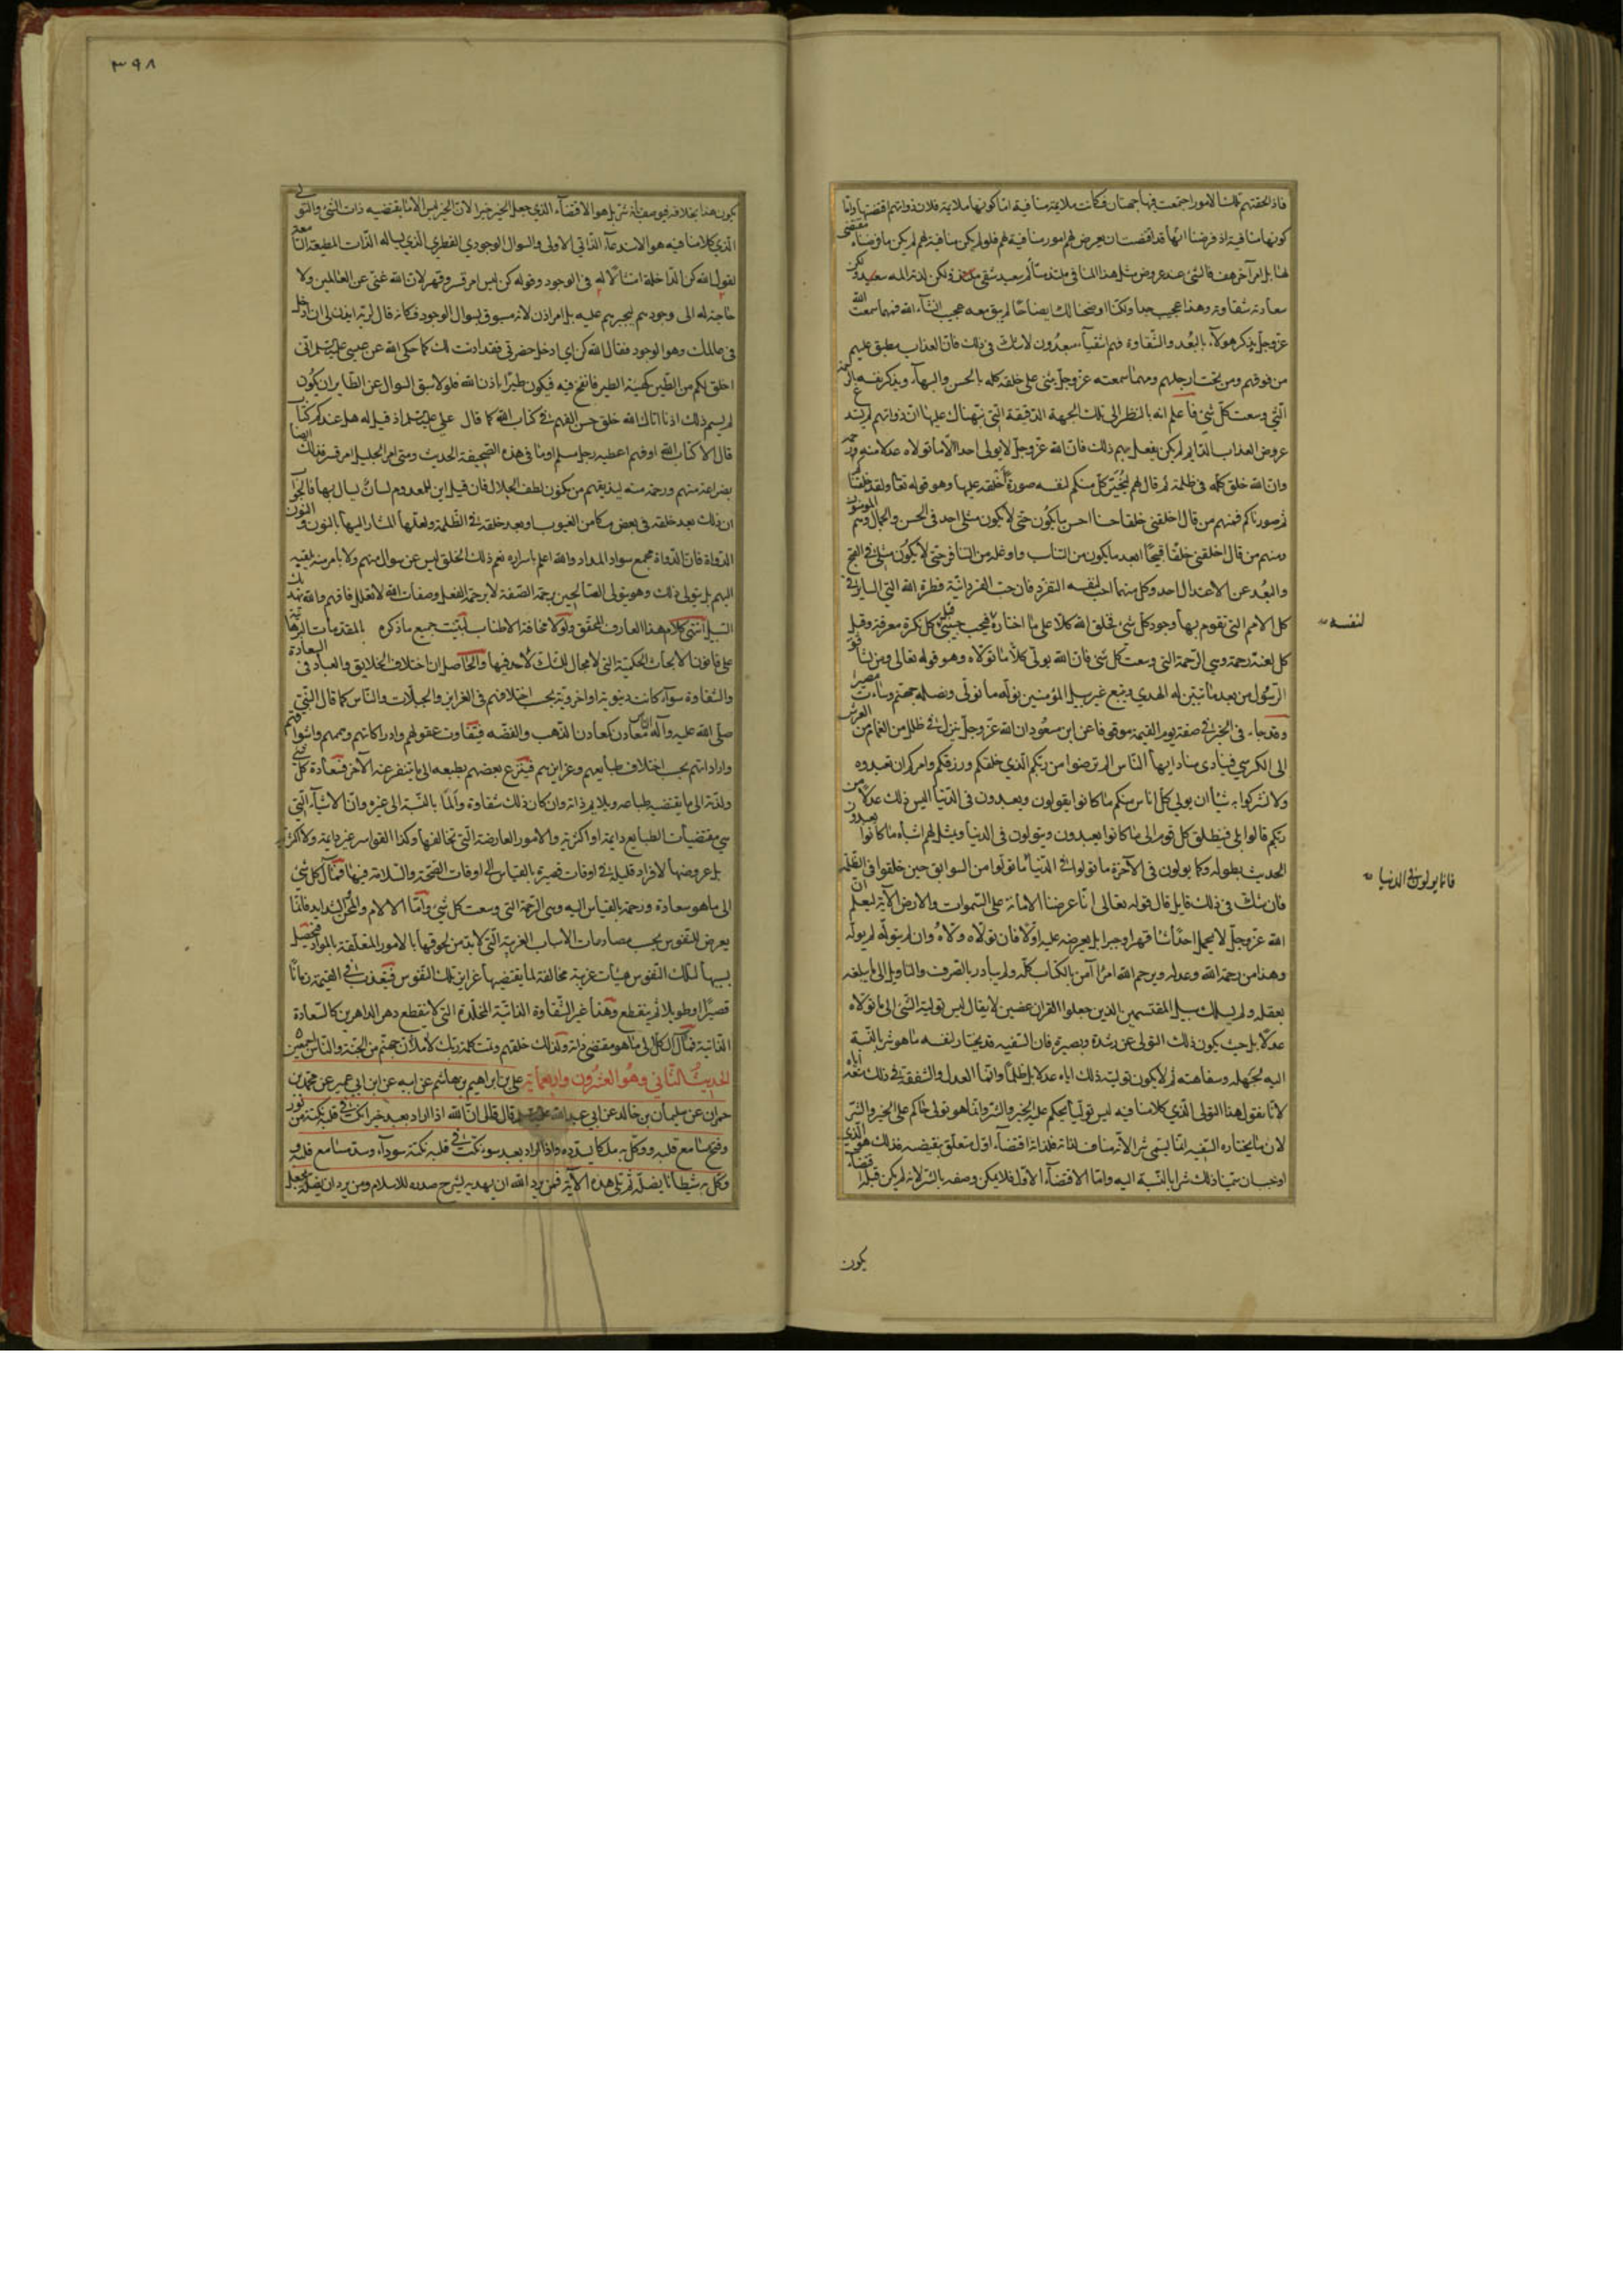 فاذا لحقتهم تلك الامور اجتمعت فيها جهتان فكانت ملايمة منافية اما كونها ملايمة فلان ذواتهم اقتضتها واما
كونها منافية اذ فرضنا انها قد اقتضت ان يعرض لهم امور منافية لهم فلو لم يكن منافية لهم لم يكن ما فرضناه مقتضى
لها بل امر آخر هف فالشئ عند عروض مثل هذا المنافى ملتذ متألم سعيد شقى ملتذ ولكن لذته المه سعيد ولكن
سعادته شقاوته وهذا عجيب جدا ولكنا اوضحنا لك ايضاحا لم يبق معه عجيب انشاء الله فمهما سمعت الله
عز وجل يذكر هولآء بالبُعد والشقاوة فهم اشقيآء مبعدون لا شك فى ذلك فان العذاب مطبق عليهم
من فوقهم ومن تحت ارجلهم ومهما سمعته عز وجل يثنى على خلقه كله بالحسن والبهآء ويذكر نفسه بالرحمة
التى وسعت كل شئ فاعلم انه بالنظر الى تلك الجهة الدقيقة التى نبهناك عليها ان ذواتهم لم يستد
عروض العذاب الدايم لم يكن يفعل بهم ذلك فان الله عز وجل لا يولى احدا الا ما تولاه عدلا منه ورحمة
وان الله خلق كله فى ظلمة ثم قال لهم ليختر كل منكم لنفسه صورة أخلقه عليها وهو قوله تعالى ولقد خلقناكم
ثم صورناكم فمنهم من قال اخلقنى خلقا حسنا احسن ما يكون حتى لا يكون مثلى احد فى الحسن والجمال وهم المومنون
ومنهم من قال اخلقنى خلقا قبيحا ابعد ما يكون من التناسب واوغله من التنافر حتى لا يكون مثلى فى القبح
والبُعد عن الاعتدال احد وكل منهما احب لنفسه التفرد فان حب الفردانية فطرة الله التى السارية فى
كل الامم التى تقوم بها وجود كل شئ فخلق الله كلا على ما اختاره
كل لعنة رحمة وهى الرحمة التى وسعت كل شئ فان الله يولى كلا ما تولاه وهو قوله تعالى ومن يشاقق
الرسول من بعد ما تبين له الهدى ويتبع غير سبيل المؤمنين نوله ما تولى ونصله جهنم وساءت مصيرا
وقد جاء فى الخبر فى صفة يوم القيمة موقوفا عن ابن مسعود ان الله عز وجل ينزل فى ظلل من الغمام من العرش
الى الكرسى فينادى مناد ايها الناس الم ترضوا من ربكم الذى خلقكم ورزقكم وامركم ان تعبدوه
ولا تشركوا به شيئا ان يولى كل اناس منكم ما كانوا يقولون ويعبدون فى الدنيا اليس ذلك عدلا من
ربكم قالوا بلى فينطلق كل قوم الى ما كانوا يعبدون ويتولون فى الدنيا ويمثل لهم اشباه ما كانوا يعبدون
الحديث بطوله وكما يولون فى الآخرة ما تولوا فى الدنيا ما تولوا من السوابق حين خلقوا فى الظلمة
فان شك فى ذلك قايل قال قوله تعالى انا عرضنا الامانة على السموات والارض الآية ليعلم ان
الله عز وجل لا يحمل احدا شيئا قهرا وجبرا بل يعرضه عليه اولا فان تولاه ولاه وان لم يتوله لم يوله
وهذا من رحمة الله وعدله ويرحم الله امرأ آمن بالكتاب كله ولم يبادر بالصرف والتاويل الى ما يبلغه
بعقله ولم يسلك سبيل المقتسمين الذين جعلوا القران عضين لا يقال ليس تولية الشئ الى ما تولاه
عدلا بل حيث يكون ذلك التولى عن رشدة وبصيرة فان السفيه قد يختار لنفسه ما هو شر بالنسبة
اليه لجهله وسفاهته ثم لا يكون تولية ذلك اياه عدلا بل ظلما وانما العدل والشفقة فى ذلك منعه اياه
لانا نقول هذا التولى الذى كلامنا فيه ليس توليا يحكم عليه الخير والشر وانما هو تولى حاكم على الخير والشر
لان ما يختاره السفيه انما يسمى شرا لانه مناف لذاته فلذاته اقتضاء اول متعلق بنقيضه فذلك هو الذى
اوجب ان سمينا ذلك شرا بالنسبة اليه واما الاقتضآء الاول فلا يمكن وصفه بالشر لانه لم يكن قبله اقتضاء
يكون
لنفسه
فانما يولون فى الدنيا
٣٩٨
يكون هذا بخلافه فيوصف بانه شر بل هو الاقتضآء الذى جعل الخير خيرا لان الخير ليس الا ما يقتضيه ذات الشئ والتولى
الذى كلامنا فيه هو الاستدعآء الذاتى الاولى والسوال الوجودى الفطرى الذى يساله الذات المطيعة السامعة
لقول الله كن الداخلة امتثالا له فى الوجود وقوله كن ليس امر قسر وقهر لان الله غنى عن العالمين ولا
حاجة له الى وجودهم ليجبرهم عليه بل امر اذن لانه مسبوق بسوال الوجود فكانه قال لربه ايذن لى ان ادخل
فى عالمك وهو الوجود فقال الله كن اى ادخل حضرتى فقد اذنت لك كما حكى الله عن عيسى عليه السلام انى
اخلق لكم من الطين كهيئة الطير فانفخ فيه فيكون طيرا باذن الله فلو لا سبق السوال عن الطاير ان يكون
لم يسم ذلك اذنا اتاك الله خلق حسن الفهم فى كتاب الله كما قال على عليه السلم اذ قيل له هل عندكم كتاب
قال لا الا كتاب الله او فهم اعطيه رجل مسلم او ما فى هذه الصحيفة الحديث ومتى امر الجليل امر قسر فذلك ايضا
بضراعة منهم ورحمة منه ليذيقهم من كون لطف الجلال فان قيل اين للمعدوم لسان يسال بها فالجواب
ان ذلك بعد خلقه فى بعض مكامن الغيوب او بعد خلقه فى الظلمة ولعلها المشار اليها بالنون والنون
الدواة فان الدواة مجمع سواد المداد والله اعلم باسراره نعم ذلك الخلق ليس عن سوال منهم ولا بامر منه يلقيه
اليهم بل يتولى ذلك وهو يتولى الصالحين برحمة الصفة لا برحمة الفعل وصفات الله لا تعلل فافهم والله يهديك
السبيل انتهى كلام هذا العارف المحقق ولولا مخافة الاطناب لبينت جميع ما ذكره بالمقدمات البرهانية
على قانون الابحاث الحكمية التى لا مجال للشك لاحد فيها والحاصل ان اختلاف الخلايق والعباد فى السعادة
والشقاوة سوآء كانت دنيوية او اخروية بحسب اختلافهم فى الغرايز والجبلات والناس كما قال النبى
صلى الله عليه وآله الناس معادن كمعادن الذهب والفضة فتفاوت عقولهم وادراكاتهم وهممهم واشواقهم
وارادتهم بحسب اختلاف طبايعهم وغرايزهم فينزع بعضهم بطبعه الى ما يتنفر عنه الآخر فسعادة كل شئ
ولذته الى ما يقتضيه طباعه ويلايم ذاته وان كان ذلك شقاوة والما بالنسبة الى غيره وان الاشيآء التى
هى مقتضيات الطبايع دايمة او اكثرية والامور العارضة التى تخالفها وكذا القواسر غير دايمة ولا اكثرية
بل عروضها لافراد قليلة فى اوقات قصيرة بالقياس الى اوقات الصحة والسلامة فيها فمآل كل شئ
الى ما هو سعادة ورحمة بالقياس اليه وهى الرحمة التى وسعت كل شئ واما الالام والمحن الشدايد فانما
يعرض للنفوس بحسب مصادمات الاسباب الغريبة التى لا بد من لحوقها بالامور المتعلقة بالمواد فيحصل
بسببها لتلك النفوس هيئات غريبة مخالفة لما يقتضيها غرايز تلك النفوس فيعذب فى القيمة زمانا
قصيرا او طويلا ثم ينقطع وهذا غير الشقاوة الذاتية المخلدة التى لا ينقطع دهر الداهرين كالسعادة
الذاتية فمآل الكل الى ما هو مقتضى ذاته ولذلك خلقهم وتمت كلمة ربك لاملان جهنم من الجنة والناس اجمعين
الحديث الثانى وهو العشرون واربعمائة على بن ابراهيم بن هاشم عن ابيه عن ابن ابى عمير عن محمد بن
حمران عن سليمان بن خالد عن ابى عبد الله عليه السلم قال قال ان الله اذا اراد بعبد خيرا نكت فى قلبه نكتة من نور
وفتح مسامع قلبه ووكل به ملكا يسدده واذا اراد بعبد سوء نكت فى قلبه نكتة سودآء وسد مسامع قلبه و
وكل به شيطانا يضله ثم تلى هذه الآية فمن يرد الله ان يهديه يشرح صدره للاسلام ومن يرد ان يضله يجعل